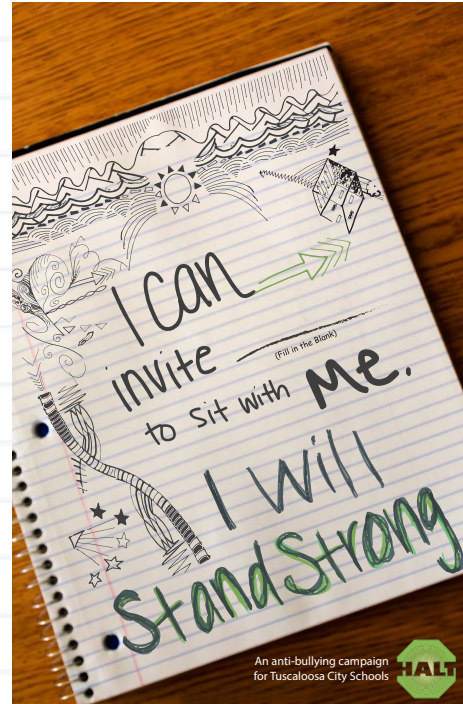 I can
invite
(Fill in the Blank)
to sit with Me.
I will
Stand Strong
An anti-bullying campaign
for Tuscaloosa City Schools
HALT